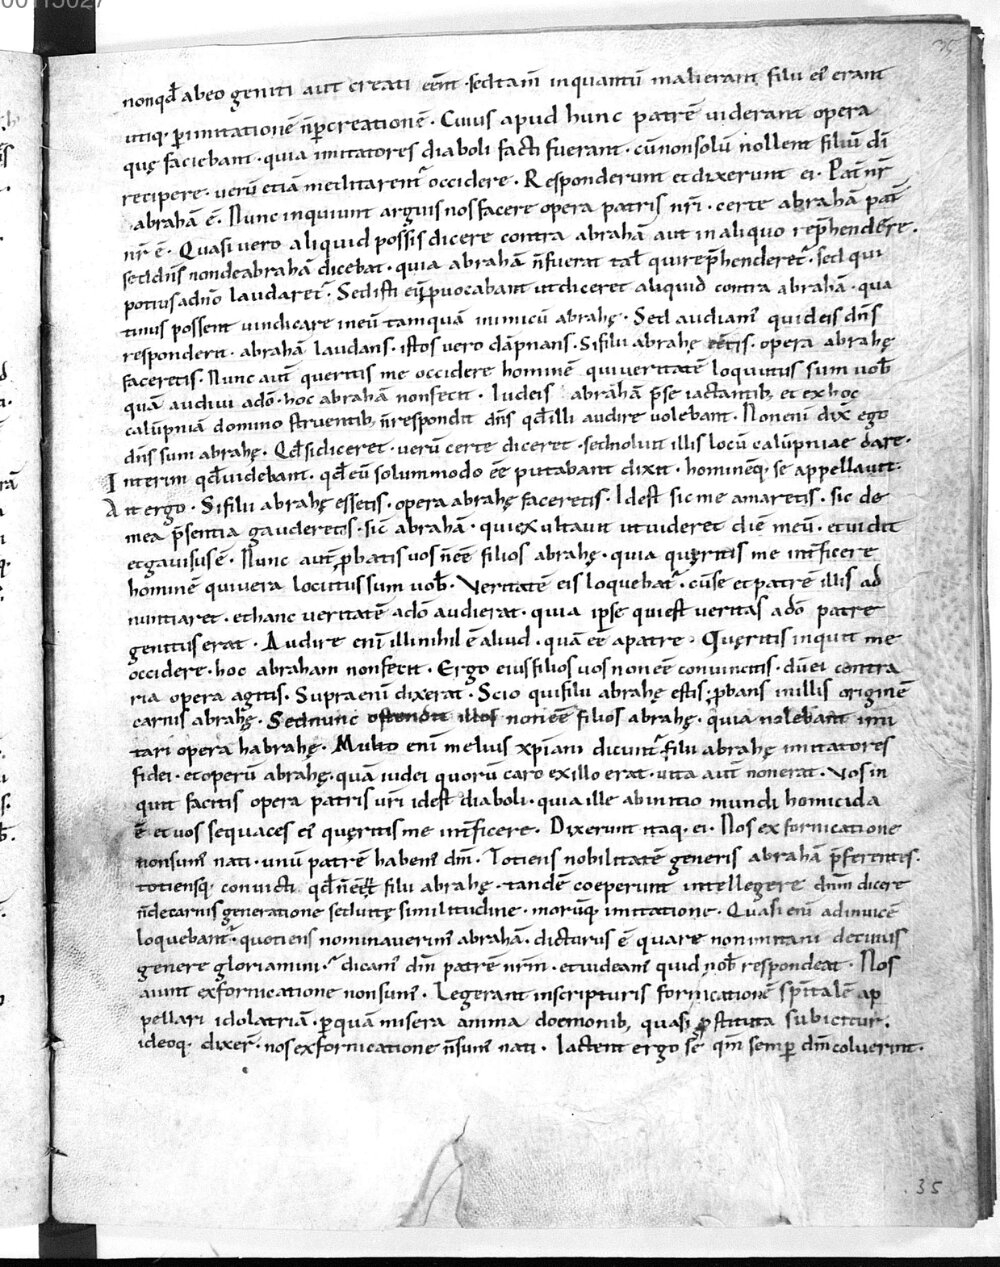 nonqđ abeo geniti aut creati eēnt · sed tam̄ inquantū mali erant filii ei' erant
utiq; p̱ imitationē n̄ p̱ creationē · Cuius apud hunc patrē viderant opera
quę faciebant · quia imitatores diaboli facti fuerant · cū non solū nollent filiū dī
recipere · verū etiā meditarent᷑ occidere · Responderunt et dixerunt ei · Pat̄ nr̄
abrahā ē · Nunc inquiunt arguis nos facere opera patris nr̄i · certe abrahā pat̄
nr̄ ē · Quasi vero aliquid possis dicere contra abrahā aut in aliquo rep̄hendere ·
sed dn̄s non de abrahā dicebat · quia abrahā n̄ fuerat tal' qui rep̄henderet᷑ · sed qui
potius a dn̄o laudaret᷑ · Sed isti eū p̱vocabant ut diceret aliquid contra abrahā · qua
tinus possent vindicare in eū tamquā inimicū abrahę · Sed audiam' quid eis dn̄s
responderit · abrahā laudans · istos vero dāpnans · Si filii abrahę eētis · opera abrahę
faceretis · Nunc aut̄ queritis me occidere hominē qui veritatē loquutus sum vob̄
quā audivi a dō · hoc abrahā non fecit · Iudeis abrahā p̄ se iactantib; et ex hoc
calūpniā domino struentib; n̄ respondit dn̄s qđ illi audire volebant · Non eni dix̄ ego
dn̄s sum abrahę · Qđ si diceret · verū certe diceret · sed noluit illis locū calūpniae dare ·
Interim qđ videbant · qđ eū solummodo eē putabant dixit · hominēq; se appellavit ·
Ait ergo · Si filii abrahę essetis · opera abrahę faceretis · Idest sic me amaretis · sic de
mea p̄sentia gauderetis · sic abrahā · qui exultavit ut videret diē meū · et vidit
et gavisus ē · Nunc aut̄ p̱batis vos n̄ eē filios abrahę · quia quęritis me int̄ficere
hominē qui vera locutus sum vob̄ · Veritatē eis loquebat᷑ · cū se et patrē illis ad
nuntiaret · et hanc veritatē a dō audierat · quia ipse qui est veritas a dō patre
genitus erat · Audire eni illi nihil ē aliud · quā eē a patre · Quęritis inquit me
occidere · hoc abraham non fecit · Ergo eius filios vos non eē convincitis · dū ei contra
ria opera agitis · Supra eni dixerat · Scio qui filii abrahę estis · p̱bans in illis originē
carnis abrahę · Sed nunc ostendit illos non eē filios abrahę · quia nolebant imi
tari opera habrahę · Multo eni melius xp̄iani dicunt᷑ filii abrahę imitatores
fidei · et operū abrahę · quā iudei quorū caro ex illo erat · vita aut̄ non erat · Vos in
quit facitis opera patris vr̄i idest diaboli · quia ille ab initio mundi homicida
ē et vos sequaces ei' quęritis me int̄ficere · Dixerunt itaq; ei · Nos ex fornicatione
non sum' nati · unū patrē habem' dm̄ · Totiens nobilitatē generis abrahā p̄ferentes ·
totiensq; convicti qđ n̄ eēnt filii abrahę · tandē coeperunt intellegere dnm̄ dicere
n̄ de carnis generatione sed vitę similitudine · morūq; imitatione · Quasi eni ad invicē
loquebant᷑ · quotiens nominaverim' abrahā · dicturus ē quare non imitami de cuius
genere gloriamini · dicam' dm̄ patrē nr̄m · et videam' quid nob̄ respondeat · Nos
aiunt ex fornicatione non sum' · Legerant in scripturis fornicationē sp̄italē ap
pellari idolatriā · p̱ quā misera anima doemonib; quasi p̱stituta subicitur ·
ideoq; dixer̄ · nos ex fornicatione n̄ sum' nati · Iactent ergo se qm̄ semp̱ dm̄ coluerint ·
35